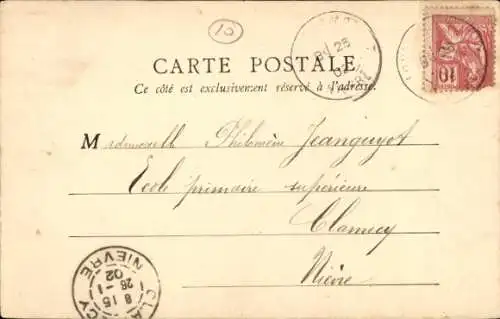 10
CARTE POSTALE
Ce côté est exclusivement réservé à l'adresse.
Mademoiselle Philomène Jeanguyot
Ecole primaire supérieure
Clamecy
Nièvre
25
02
NIÈVRE
10
CLAMECY
8 15
26 - 1
02
NIEVRE